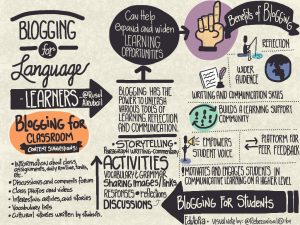 BLOGGING
for
Language
LEARNERS
BLOGGING FOR
CLASSROOM
CONTENT SUGGESTIONS:
• Information about class,
assignments, daily routines, links,
etc.
• Discussions and comments forum
• Class photos and videos
• Interesting articles, and stories
• Vocabulary lists
• Cultural stories written by students.
Can Help
Expand and widen
LEARNING
OPPORTUNITIES
BLOGGING HAS THE
POWER TO UNLEASH
VARIOUS TOOLS OF
LEARNING, REFLECTION,
AND COMMUNICATION.
• STORYTELLING •
ACTIVITIES
VOCABULARY & GRAMMAR
SHARING IMAGES/LINKS
RESPONSES • REFLECTIONS
DISCUSSIONS
Benefits of Blogging
REFLECTION
WIDER
AUDIENCE
WRITING AND COMMUNICATION SKILLS
BUILDS A LEARNING SUPPORT
COMMUNITY
EMPOWERS
STUDENT VOICE
PLATFORM FOR
PEER FEEDBACK
MOTIVATES AND ENGAGES STUDENTS IN
COMMUNICATIVE LEARNING ON A HIGHER LEVEL
Blogging For Students
Edutopia
visual note by: